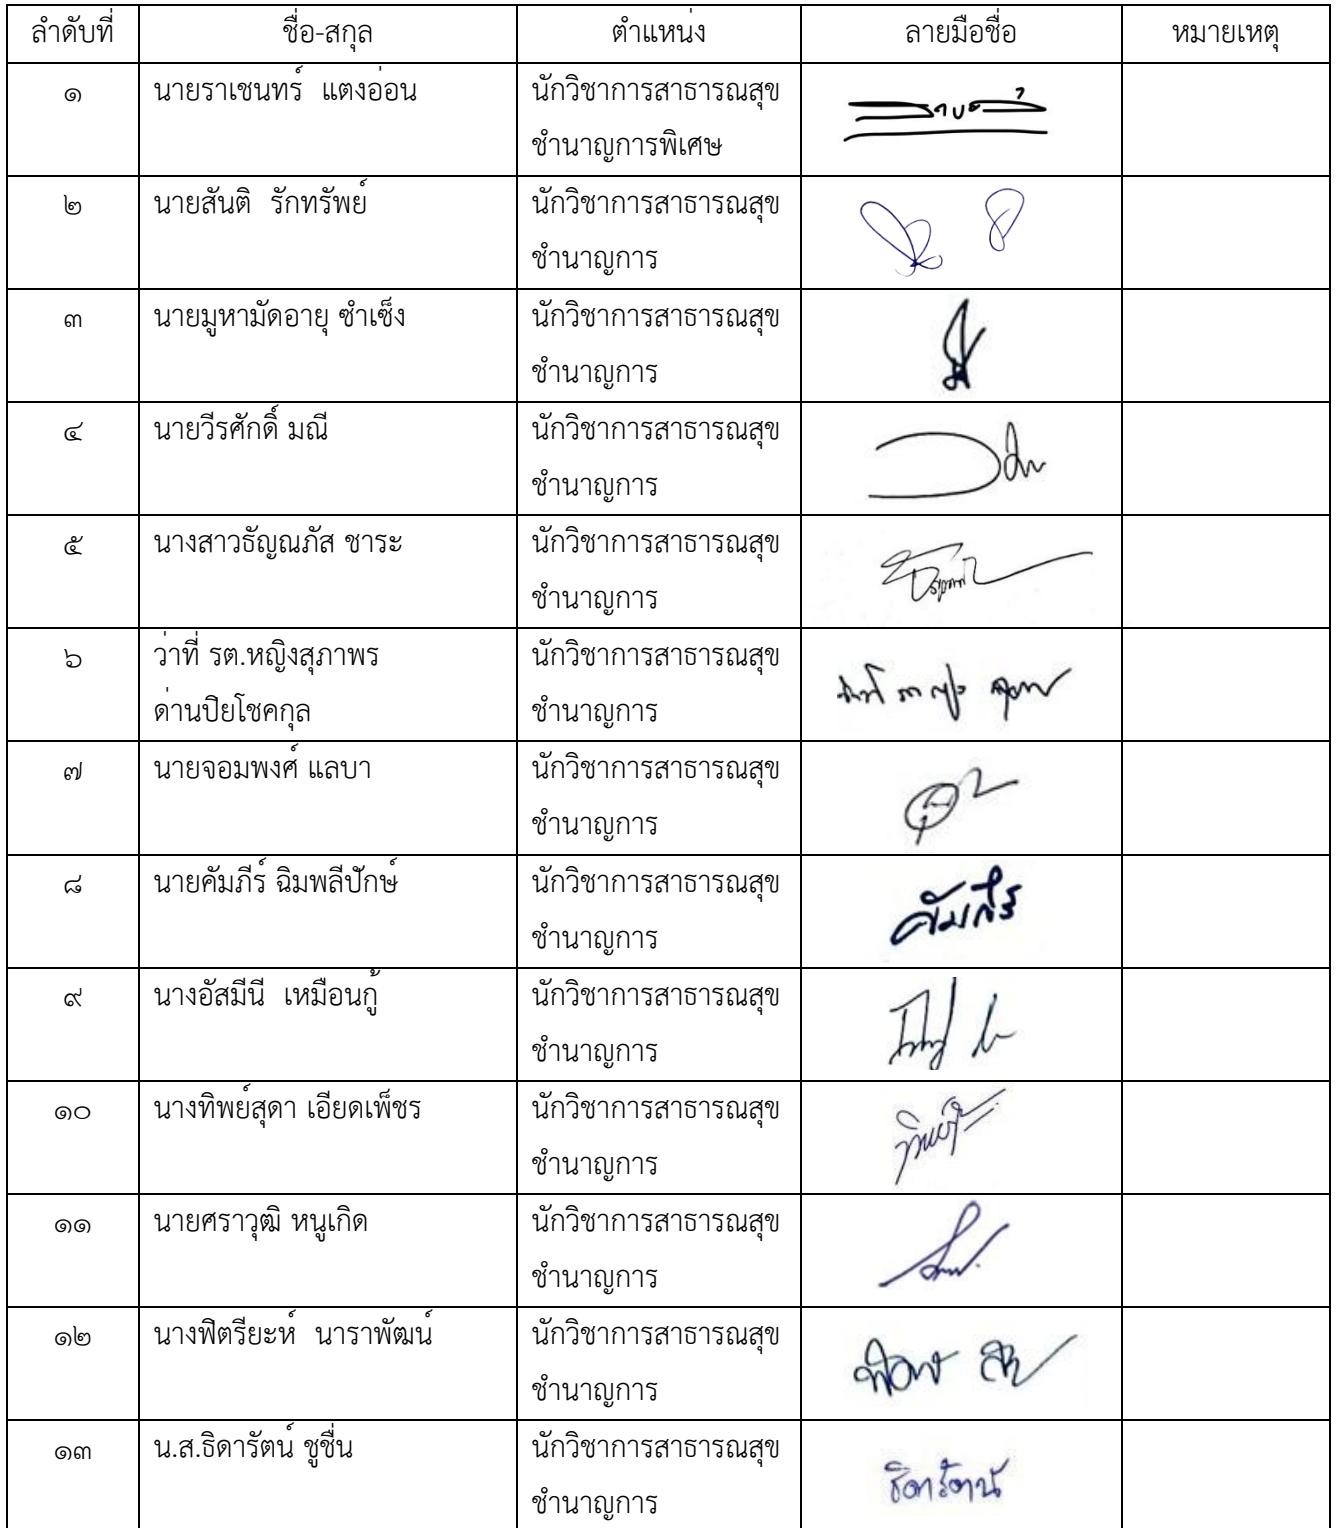 ลำดับที่ ชื่อ-สกุล ตำแหน่ง ลายมือชื่อ หมายเหตุ
๑ นายราเชนทร์ แตงอ่อน นักวิชาการสาธารณสุข
ชำนาญการพิเศษ
๒ นายสันติ รักทรัพย์ นักวิชาการสาธารณสุข
ชำนาญการ
๓ นายมูหามัดอายุ ซำเซ็ง นักวิชาการสาธารณสุข
ชำนาญการ
๔ นายวีรศักดิ์ มณี นักวิชาการสาธารณสุข
ชำนาญการ
๕ นางสาวธัญณภัส ชาระ นักวิชาการสาธารณสุข
ชำนาญการ
๖ ว่าที่ รต.หญิงสุภาพร นักวิชาการสาธารณสุข
ด่านปิยโชคกุล ชำนาญการ
๗ นายจอมพงศ์ แลบา นักวิชาการสาธารณสุข
ชำนาญการ
๘ นายคัมภีร์ ฉิมพลีปักษ์ นักวิชาการสาธารณสุข คัมภีร์
ชำนาญการ
๙ นางอัสมีนี เหมือนกู้ นักวิชาการสาธารณสุข
ชำนาญการ
๑๐ นางทิพย์สุดา เอียดเพ็ชร นักวิชาการสาธารณสุข
ชำนาญการ
๑๑ นายศราวุฒิ หนูเกิด นักวิชาการสาธารณสุข
ชำนาญการ
๑๒ นางฟิตรียะห์ นาราพัฒน์ นักวิชาการสาธารณสุข
ชำนาญการ
๑๓ น.ส.ธิดารัตน์ ชูชื่น นักวิชาการสาธารณสุข ธิดารัตน์
ชำนาญการ